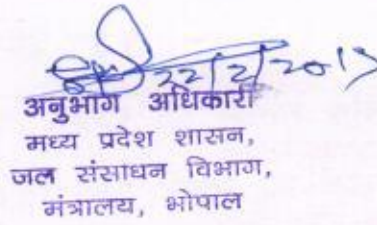 22/2/2013
अनुभाग अधिकारी
मध्य प्रदेश शासन,
जल संसाधन विभाग,
मंत्रालय, भोपाल